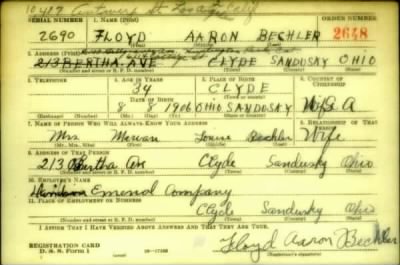 10417 Antwerp St Los Ang Calif
SERIAL NUMBER 1. NAME (Print) ORDER NUMBER
2690 FLOYD AARON BECHLER 2648
(First) (Middle) (Last)
2. ADDRESS (Print)
213 BERTHA AVE CLYDE SANDUSKY OHIO
(Number and street or R. F. D. number) (Town) (County) (State)
3. TELEPHONE 4. AGE IN YEARS 5. PLACE OF BIRTH 6. COUNTRY OF CITIZENSHIP
34 CLYDE
DATE OF BIRTH
8 8 1906 OHIO SANDUSKY U.S.A
7. NAME OF PERSON WHO WILL ALWAYS KNOW YOUR ADDRESS 8. RELATIONSHIP OF THAT PERSON
Mrs. Louise Bechler Wife
(Mr., Mrs., Miss) (First) (Middle) (Last)
9. ADDRESS OF THAT PERSON
213 Bertha Ave Clyde Sandusky Ohio
(Number and street or R. F. D. number) (Town) (County) (State)
10. EMPLOYER'S NAME
Company
11. PLACE OF EMPLOYMENT OR BUSINESS
Clyde Sandusky Ohio
(Number and street or R. F. D. number) (Town) (County) (State)
I AFFIRM THAT I HAVE VERIFIED ABOVE ANSWERS AND THAT THEY ARE TRUE.
REGISTRATION CARD
D. S. S. Form 1
Floyd Aaron Bechler
(Registrant's signature)